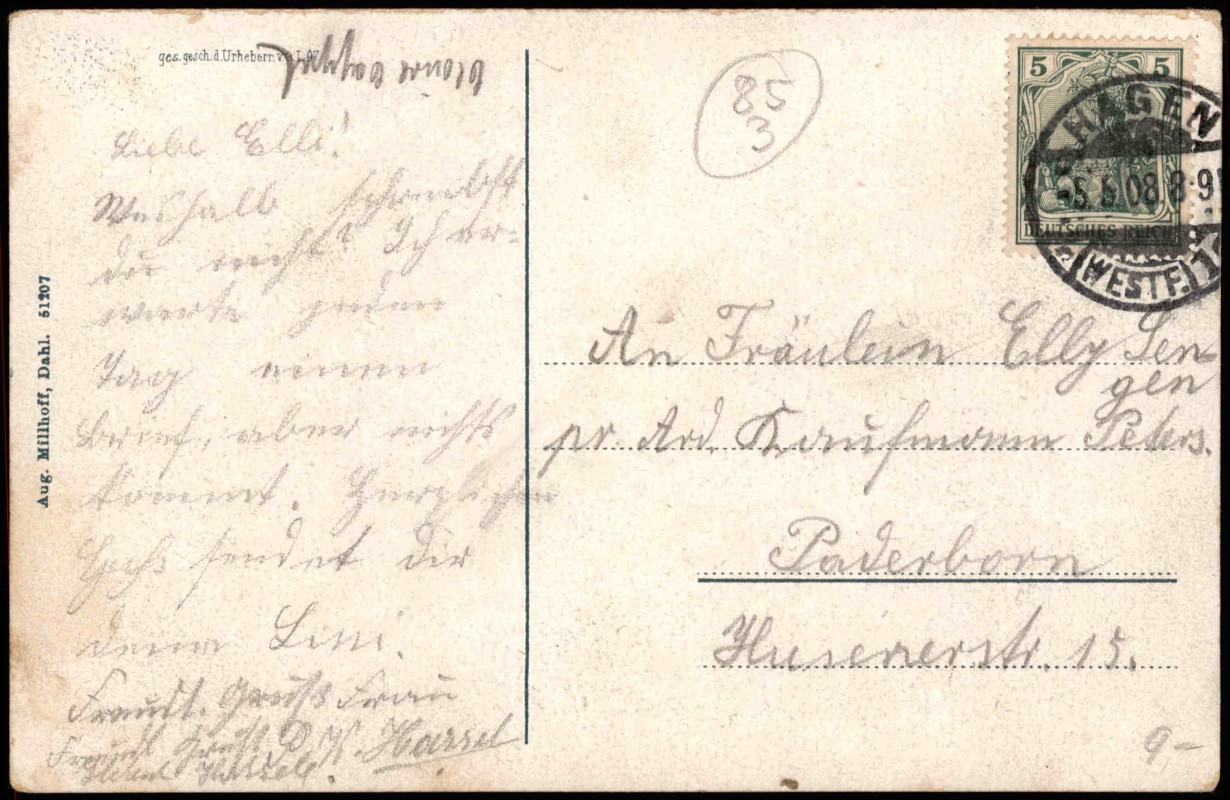 ges. gesch. d. Urhebern
85
3
5 5
DEUTSCHES REICH
HAGEN
-5.6.08.8-9
(WESTF.) 1
Liebe Elli!
Weshalb schreibst
du nicht? Ich er-
warte jeden
Tag einen
Brief, aber nichts
kommt. Herzlichen
Gruß sendet dir
deine Lini.
Freudl. Gruß Frau
Hassel
Gruß
Aug. Millhoff, Dahl. 51207
An Fräulein Elly Sen-
gen
pr. Ard. Kaufmann Peters.
Paderborn
Husenerstr. 15.
9-